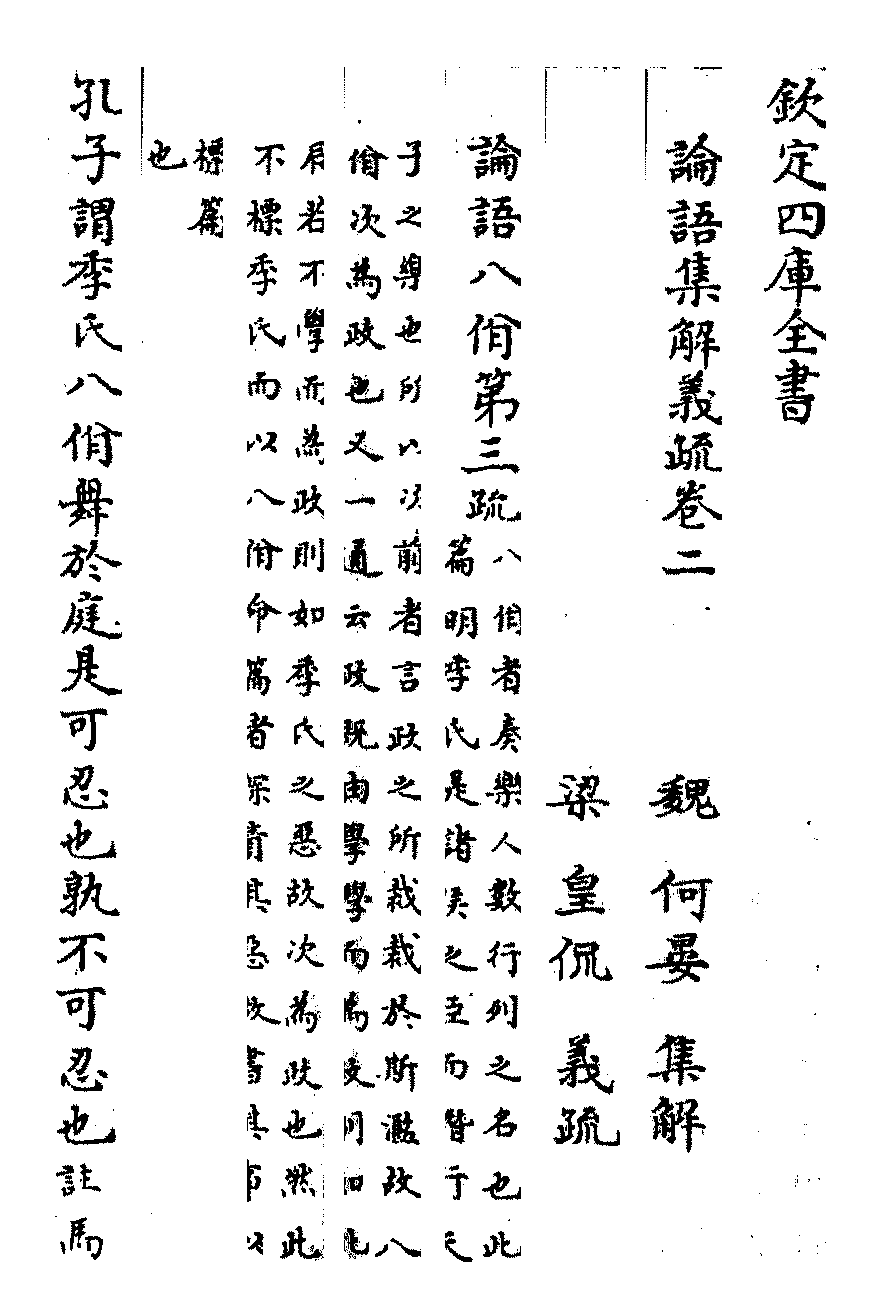 欽定四庫全書
論語集解義疏卷二
魏 何晏 集解
梁 皇侃 義疏
論語八佾第三疏
八佾者奏樂人數行列之名也此
篇明季氏是諸侯之臣而僭行天
子之樂也所以次前者言政之所裁裁於斯濫故八
佾次為政也又一通云政既由學學而為政則如北
辰若不學而為政則如季氏之惡故次為政也然此
不標季氏而以八佾命篇者深責其惡故書其事以
標篇
也
孔子謂季氏八佾舞於庭是可忍也孰不可忍也註馬